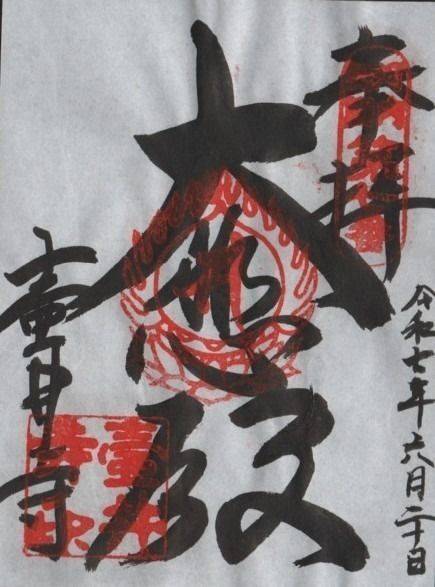 奉拝
令和七年六月二十日
大悲殿
壷井寺